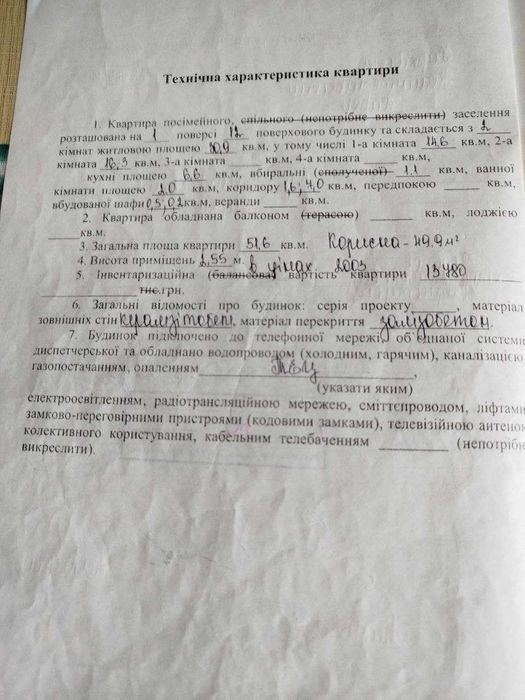 Технічна характеристика квартири
1. Квартира посімейного, спільного (непотрібне викреслити) заселення
розташована на 1 поверсі 12 поверхового будинку та складається з 2
кімнат житловою площею 30,9 кв.м, у тому числі 1-а кімната 14,6 кв.м, 2-а
кімната 16,3 кв.м, 3-а кімната ______ кв.м, 4-а кімната ______ кв.м,
кухні площею 6,6 кв.м, вбиральні (сполученої) 1,1 кв.м, ванної
кімнати площею 2,0 кв.м, коридору 1,6; 4,0 кв.м, передпокою ______ кв.м,
вбудованої шафи 0,5; 0,2 кв.м, веранди ______ кв.м.
2. Квартира обладнана балконом (терасою) ______ кв.м, лоджією
______ кв.м.
3. Загальна площа квартири 51,6 кв.м. Корисна - 49.9 м²
4. Висота приміщень 2,55 м. в цінах 2003
5. Інвентаризаційна (балансова) вартість квартири 13480
______ тис.грн.
6. Загальні відомості про будинок: серія проекту______, матеріал
зовнішніх стін керамзітобет, матеріал перекриття залізобетон.
7. Будинок підключено до телефонної мережі, об'єднаної системи
диспетчерської та обладнано водопроводом (холодним, гарячим), каналізацією,
газопостачанням, опаленням ТЕЦ ,
(указати яким)
електроосвітленням, радіотрансляційною мережею, сміттєпроводом, ліфтами
замково-переговірними пристроями (кодовими замками), телевізійною антеною
колективного користування, кабельним телебаченням ______ (непотрібн
викреслити).